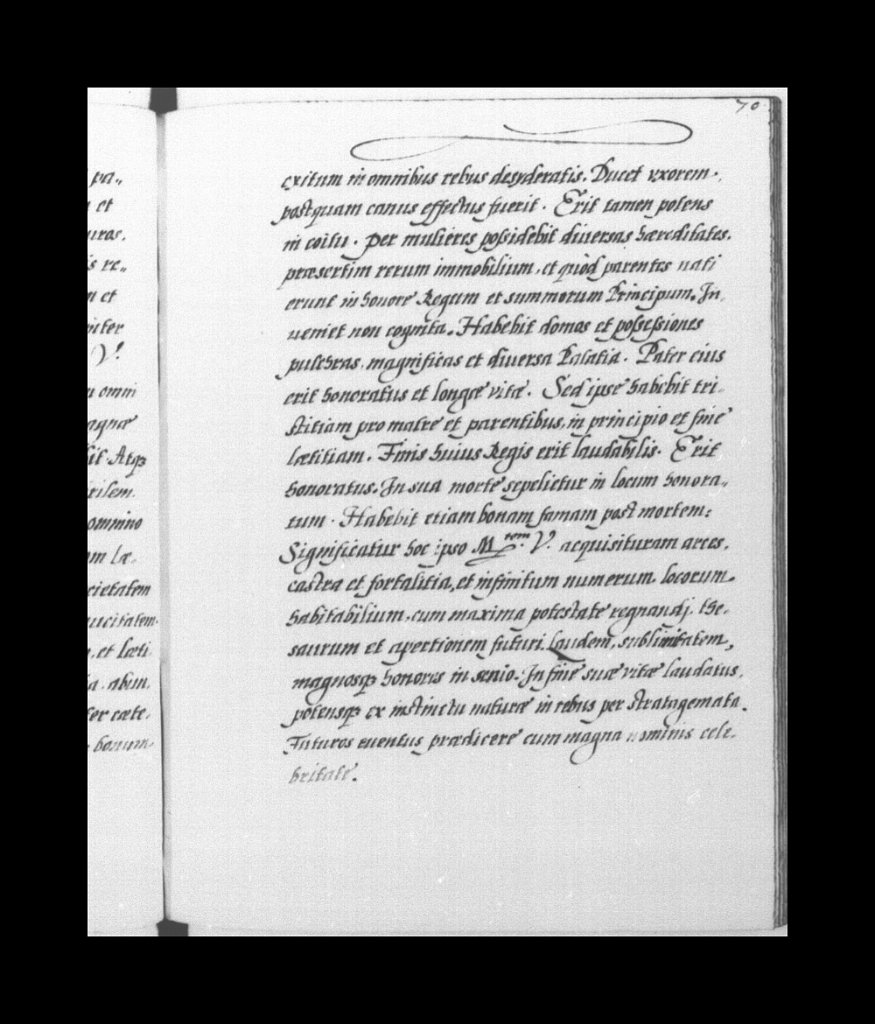 70
exitum in omnibus rebus desyderatis. Ducet vxorem,
postquam canus effectus fuerit. Erit tamen potens
in coitu. per mulieres possidebit diuersas hæreditates,
præsertim rerum immobilium, et quòd parentes nati
erunt in honore Regum et summorum Principum. In,
ueniet non cognita. Habebit domos et possessiones
pulchras, magnificas et diuersa Palatia. Pater eius
erit honoratus et longæ vitæ. Sed ipse habebit tri,
stitiam pro matre et parentibus, in principio et fine
lætitiam. Finis huius Regis erit laudabilis. Erit
honoratus. In sua morte sepelietur in locum honora,,
tum. Habebit etiam bonam famam post mortem:
Significatur hoc ipso M.tem V. acquisituram arces,
castra et fortalitia, et infinitum numerum locorum
habitabilium, cum maxima potestate regnandj, the,
saurum et apertionem futuri. Laudem, sublimitatem,
magnosq; honores in senio. In fine suæ vitæ laudatus,
potensq; ex instinctu naturæ in rebus per stratagemata.
Futuros euentus prædicere cum magna nominis cele,
britate.
pa,,
et
uras.
is re,,
et
piter
V.
omni
agnæ
bit Atq;
rilem
ommino
læ,
cietatem
ucitatem
et læti
abun,
fer cæte,
bonum